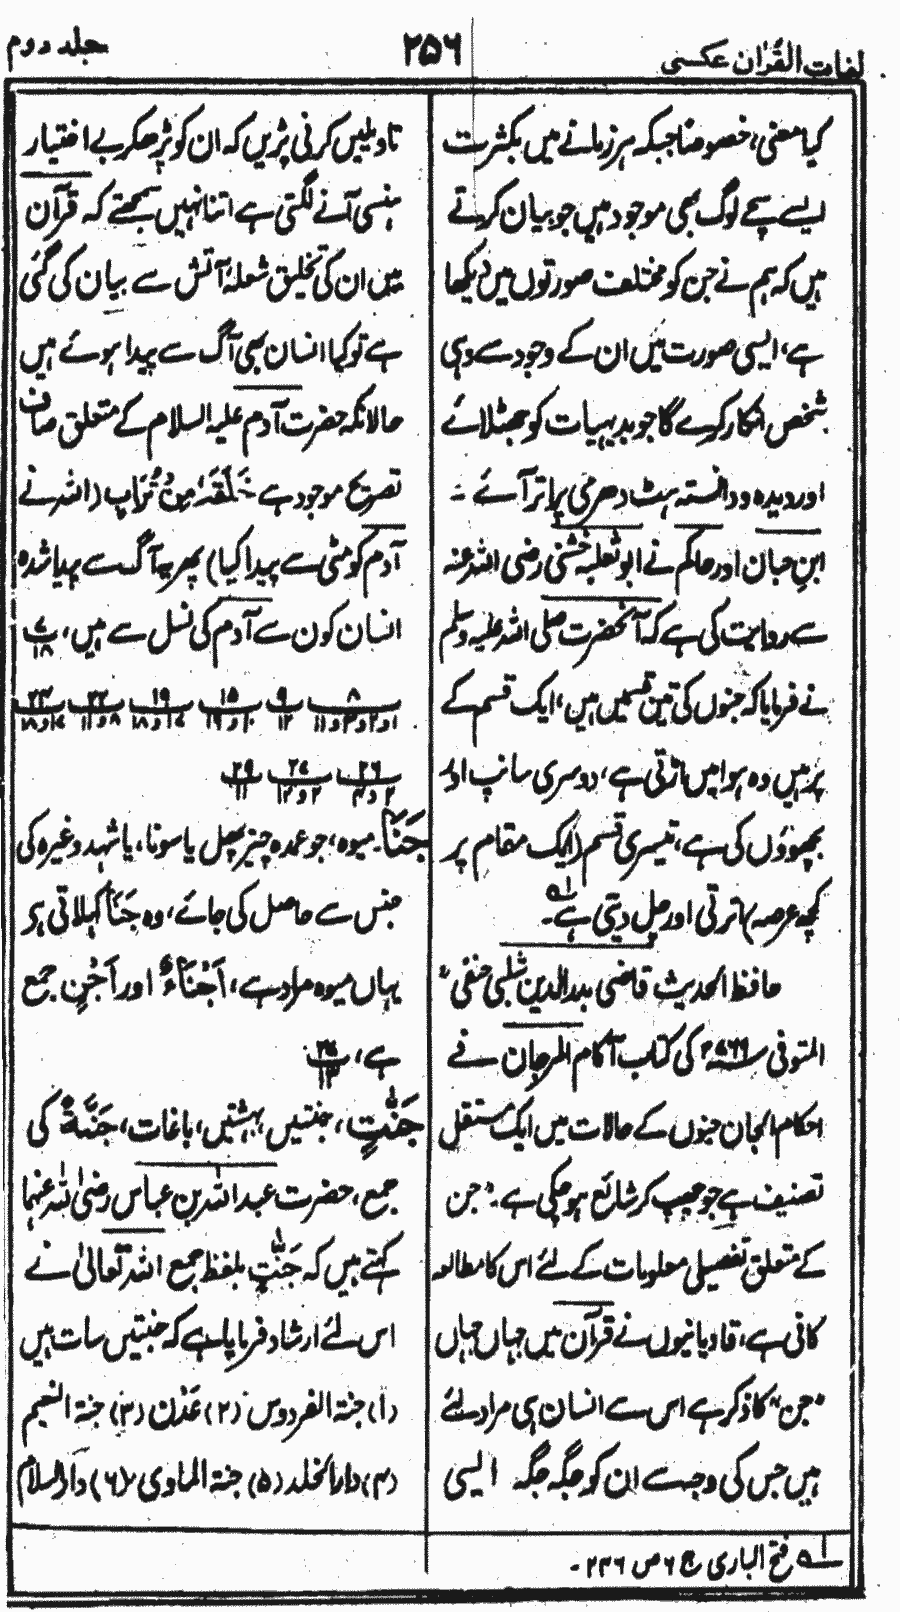 لغات القرآن عکسی
۲۵۶
جلد دوم
کیا معنی، خصوصًا جبکہ ہر زمانے میں بکثرت
ایسے سچے لوگ بھی موجود ہیں جو بیان کرتے
ہیں کہ ہم نے جن کو مختلف صورتوں میں دیکھا
ہے، ایسی صورت میں ان کے وجود سے وہی
شخص انکار کرے گا جو بدیہیات کو جھٹلائے
اور دیدہ و دانستہ ہٹ دھرمی پر اتر آئے ۔
ابن حبان اور حاکم نے ابو ثعلبہ خشنی رضی اللہ عنہ
سے روایت کی ہے کہ آنحضرت صلی اللہ علیہ وسلم
نے فرمایا کہ جنوں کی تین قسمیں ہیں، ایک قسم کے
پر ہیں وہ ہوا میں اڑتی ہے، دوسری سانپ اور
بچھوؤں کی ہے، تیسری قسم (ایک مقام پر
کچھ عرصہ) اترتی اور چل دیتی ہے۔ لہ
حافظ الحدیث قاضی بدرالدین شبلی حنفی
المتوفی ۷۶۹ھ کی کتاب آکام المرجان فے
احکام الجان جنوں کے حالات میں ایک مستقل
تصنیف ہے جو چھپ کر شائع ہو چکی ہے۔ "جن"
کے متعلق تفصیلی معلومات کے لئے اس کا مطالعہ
کافی ہے، قادیانیوں نے قرآن میں جہاں جہاں
"جن" کا ذکر ہے اس سے انسان ہی مراد لئے
ہیں جس کی وجہ سے ان کو جگہ جگہ ایسی
لہ فتح الباری ج ۶ ص ۲۴۶ ۔
تاویلیں کرنی پڑیں کہ ان کو پڑھکر بے اختیار
ہنسی آنے لگتی ہے اتنا نہیں سمجھتے کہ قرآن
میں ان کی تخلیق شعلۂ آتش سے بیان کی گئی
ہے تو کیا انسان بھی آگ سے پیدا ہوئے ہیں
حالانکہ حضرت آدم علیہ السلام کے متعلق صاف
تصریح موجود ہے خَلَقَهُ مِنْ تُرَابٍ (اللہ نے
آدم کو مٹی سے پیدا کیا) پھر یہ آگ سے پیدا شدہ
انسان کون سے آدم کی نسل سے ہیں، پ ۷ ۱۸
۸ ۱و۲و۳و۱۱ ۹ ۱۲ ۱۵ ۱۰و۱۹ ۱۹ ۷و۱۸ ۲۲ ۸و۱۱ ۲۳ ۷و۱و۱۸
۲۶ ۲و۴ ۲۷ ۲و۱۲ ۲۹ ۱۱
جَنَا۔ میوہ، جو عمدہ چیز پھل یا سونا، یا شہد وغیرہ کی
جنس سے حاصل کی جائے، وہ جَنَا کہلاتی ہے
یہاں میوہ مراد ہے، اَجْنَاءُ اور اَجْنٍ جمع
ہے، ۲۷ ۱۳
جَنّٰتٍ، جنتیں بہشتیں، باغات، جَنَّةٌ کی
جمع، حضرت عبد اللہ بن عباس رضی اللہ عنہما
کہتے ہیں کہ جَنّٰتٍ بلفظ جمع اللہ تعالیٰ نے
اس لئے ارشاد فرمایا ہے کہ جنتیں سات ہیں
(۱) جنة الفردوس (۲) عَدْن (۳) جنة النعیم
(۴) دارالخلد (۵) جنة الماوی (۶) دارالسلام